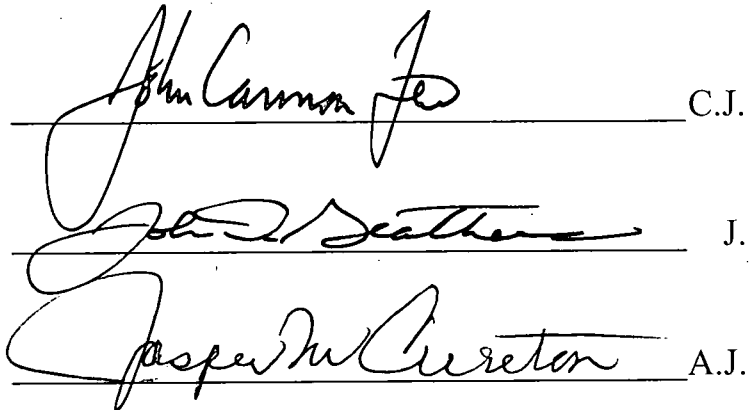 John Cannon Few C.J.
John D. Geathers J.
Jasper M Cureton A.J.